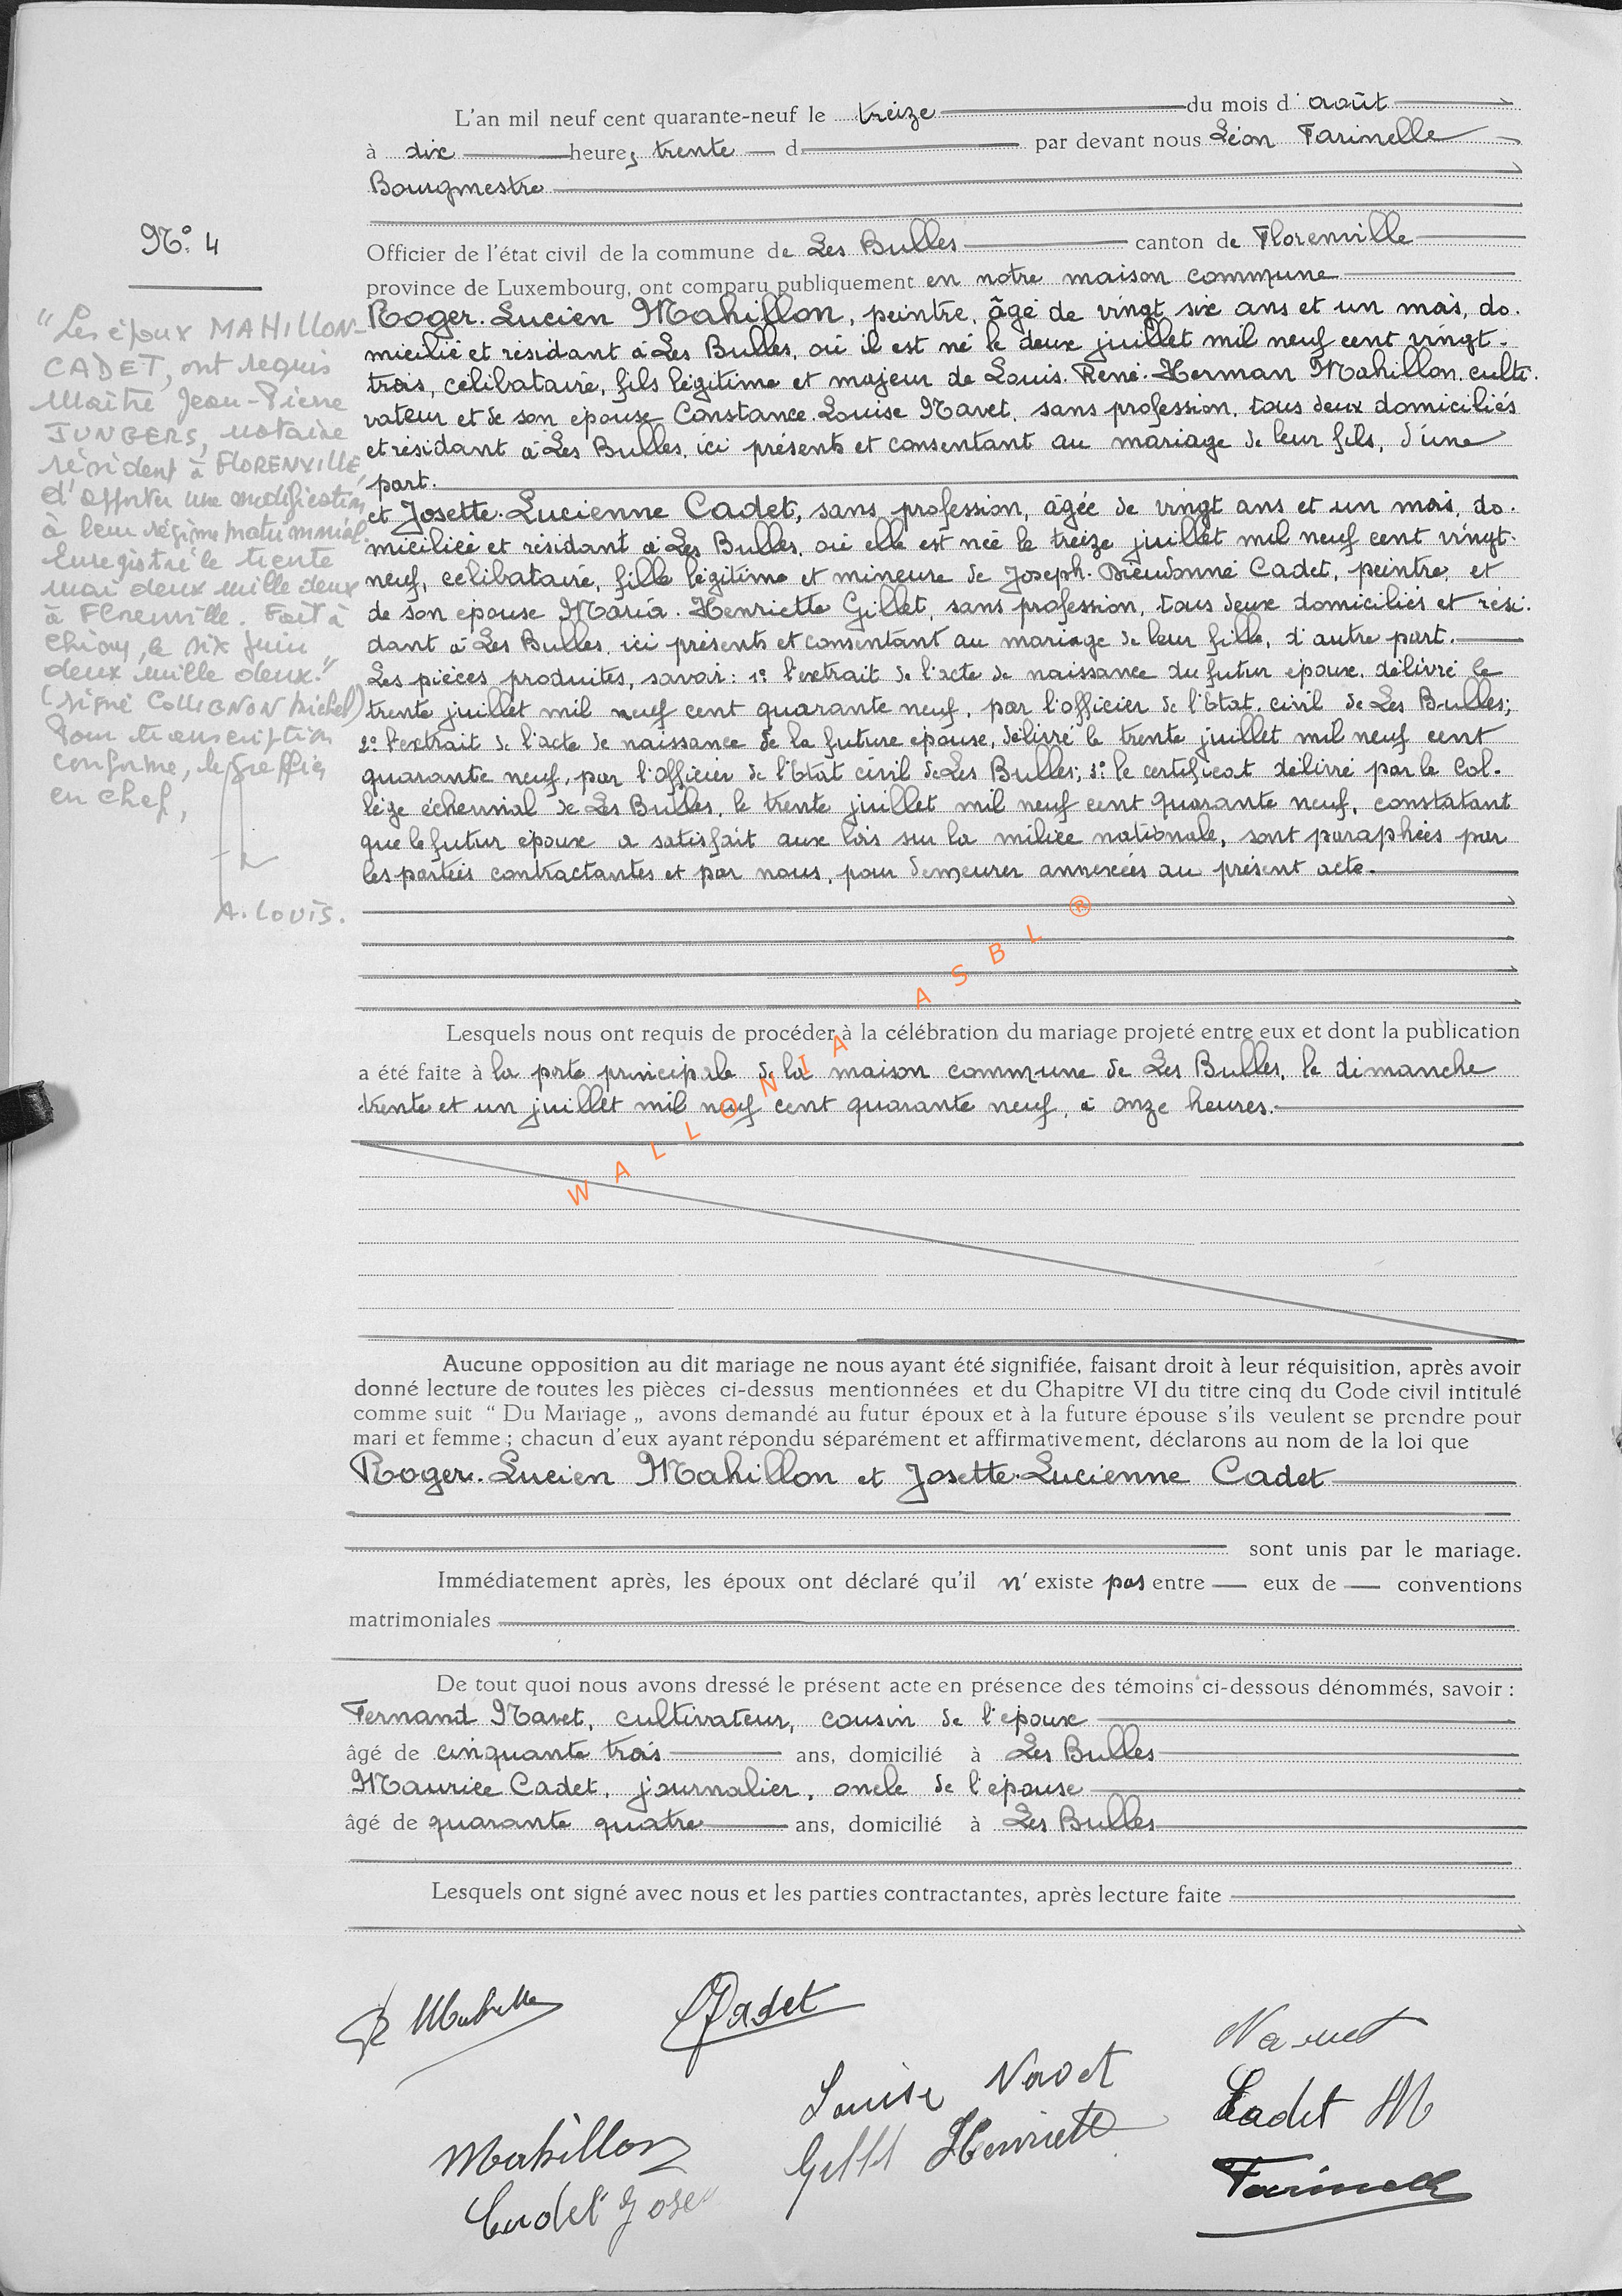 L'an mil neuf cent quarante-neuf le treize du mois d'août
à dix heures trente d par devant nous Léon Farinelle
Bourgmestre
N° 4
Officier de l'état civil de la commune de Les Bulles canton de Florenville
province de Luxembourg, ont comparu publiquement en notre maison commune
Roger-Lucien Mahillon, peintre, âgé de vingt six ans et un mois, do-
micilié et résidant à Les Bulles, où il est né le deux juillet mil neuf cent vingt-
trois, célibataire, fils légitime et majeur de Louis-René-Herman Mahillon, culti-
vateur et de son épouse Constance-Louise Navet, sans profession, tous deux domiciliés
et résidant à Les Bulles, ici présents et consentant au mariage de leur fils, d'une
part.
et Josette-Lucienne Cadet, sans profession, âgée de vingt ans et un mois, do-
miciliée et résidant à Les Bulles, où elle est née le treize juillet mil neuf cent vingt-
neuf, célibataire, fille légitime et mineure de Joseph-Dieudonné Cadet, peintre, et
de son épouse Maria-Henriette Gillet, sans profession, tous deux domiciliés et rési-
dant à Les Bulles, ici présents et consentant au mariage de leur fille, d'autre part.
Les pièces produites, savoir: 1° l'extrait de l'acte de naissance du futur époux, délivré le
trente juillet mil neuf cent quarante neuf, par l'officier de l'Etat civil de Les Bulles;
2° l'extrait de l'acte de naissance de la future épouse, délivré le trente juillet mil neuf cent
quarante neuf, par l'officier de l'Etat civil de Les Bulles; 3° le certificat délivré par le Col-
lège échevinal de Les Bulles, le trente juillet mil neuf cent quarante neuf, constatant
que le futur époux a satisfait aux lois sur la milice nationale, sont paraphées par
les parties contractantes et par nous, pour demeurer annexées au présent acte.
"Les époux MAHILLON-
CADET, ont requis
Maître Jean-Pierre
JUNGERS, notaire
résident à FLORENVILLE,
d'apporter une modification
à leur régime matrimonial.
Enregistré le trente
mai deux mille deux
à Florenville. Fait à
Chiny, le six juin
deux mille deux."
(signé COLLIGNON Michel)
Pour transcription
conforme, le greffier
en chef,
A. LOUIS.
Lesquels nous ont requis de procéder à la célébration du mariage projeté entre eux et dont la publication
a été faite à la porte principale de la maison commune de Les Bulles, le dimanche
trente et un juillet mil neuf cent quarante neuf, à onze heures.
WALLONIA ASBL ®
Aucune opposition au dit mariage ne nous ayant été signifiée, faisant droit à leur réquisition, après avoir
donné lecture de toutes les pièces ci-dessus mentionnées et du Chapitre VI du titre cinq du Code civil intitulé
comme suit “ Du Mariage „ avons demandé au futur époux et à la future épouse s'ils veulent se prendre pour
mari et femme ; chacun d'eux ayant répondu séparément et affirmativement, déclarons au nom de la loi que
Roger-Lucien Mahillon et Josette-Lucienne Cadet
sont unis par le mariage.
Immédiatement après, les époux ont déclaré qu'il n'existe pas entre eux de conventions
matrimoniales
De tout quoi nous avons dressé le présent acte en présence des témoins ci-dessous dénommés, savoir :
Fernand Navet, cultivateur, cousin de l'époux
âgé de cinquante trois ans, domicilié à Les Bulles
Maurice Cadet, journalier, oncle de l'épouse
âgé de quarante quatre ans, domicilié à Les Bulles
Lesquels ont signé avec nous et les parties contractantes, après lecture faite
R Mahillon
JCadet
Navet
Louise Navet
Cadet M
Mahillon
Gillet Henriette
Farinelle
Cadet Jose